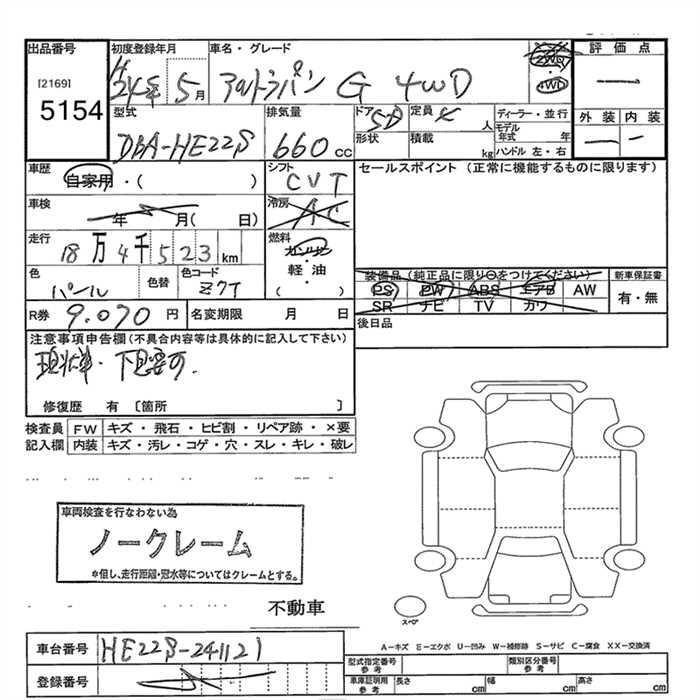 出品番号
[2169]
5154
初度登録年月
H24年 5月
車名・グレード
アルトラパン G 4WD
2WD
4WD
評価点
一
外装 内装
一 一
型式
DBA-HE22S
排気量
660cc
ドア 5D
形状
定員 人
積載 kg
ディーラー・並行
モデル年式 年
ハンドル 左・右
車歴
自家用・( )
シフト
CVT
セールスポイント (正常に機能するものに限ります)
車検
年 月( 日)
冷房
AC
走行
18万4千523km
燃料
ガソリン
軽・油
( )
色
パール
色替
色コード
Z7T
装備品 (純正品に限り○をつけてください)
PS PW ABS エアB AW
SR ナビ TV カワ
新車保証書
有・無
R券 9,070円
名変期限 月 日
後日品
注意事項申告欄(不具合内容等は具体的に記入して下さい)
現状車・下見要す.
修復歴 有 〔箇所 〕
検査員記入欄
FW キズ・飛石・ヒビ割・リペア跡・×要
内装 キズ・汚レ・コゲ・穴・スレ・キレ・破レ
車両検査を行なわない為
ノークレーム
*但し、走行距離・冠水等についてはクレームとする。
不動車
スペア
A-キズ E-エクボ U-凹み W-補修跡 S-サビ C-腐食 XX-交換済
車台番号 HE22S-241121
登録番号
型式指定番号参考
類別区分番号参考
車庫証明用参考
長さ cm
幅 cm
高さ cm